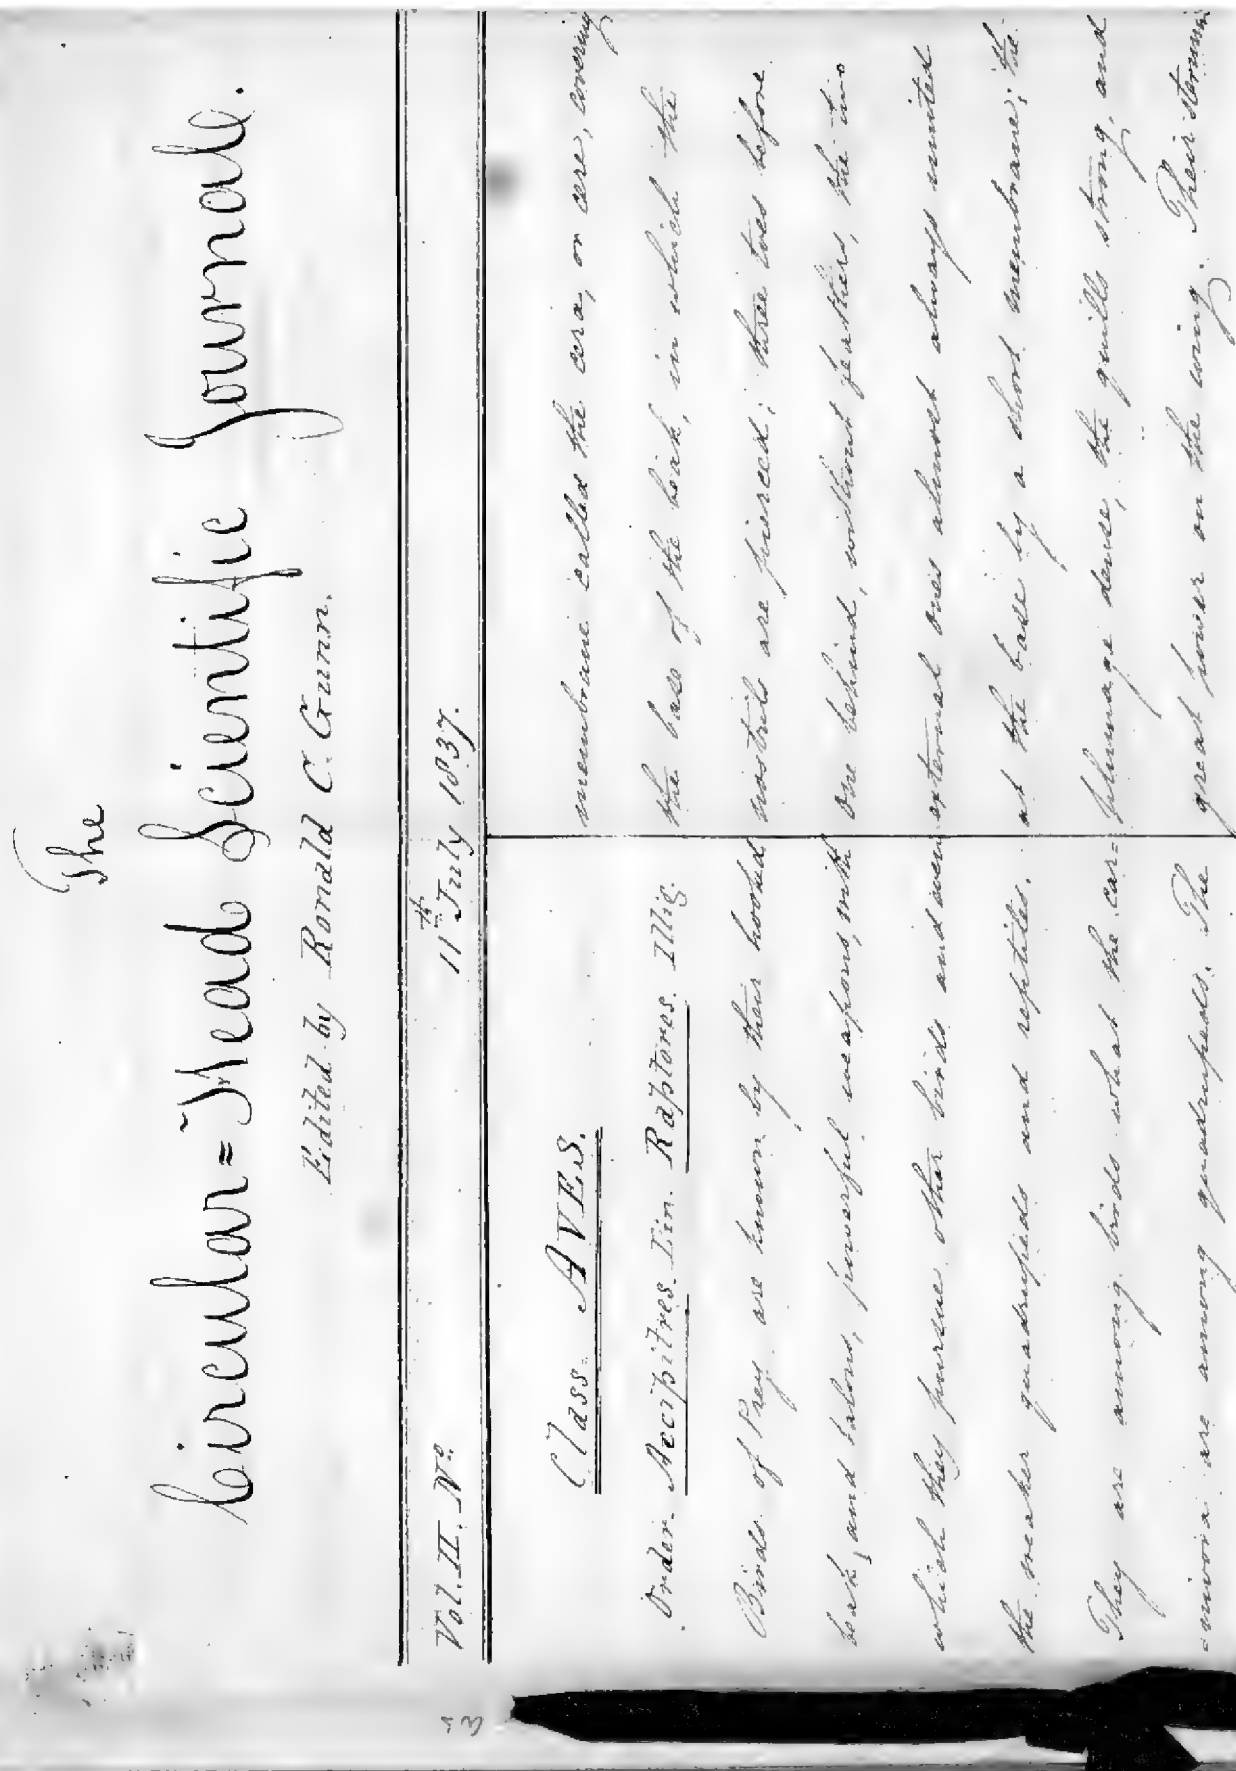 The
Circular=Head Scientific Journal.
Edited by Ronald C. Gunn.
Vol. II. No. 11th July 1837.
Class. AVES.
Order. Accipitres. Lin. Raptores. Illig
Birds of Prey are known by their hooked
beak, and talons, powerful weapons, with
which they pursue other birds and even
the weaker quadrupeds and reptiles.
They are among birds what the car=
=nivora are among quadrupeds. The
membrane called the cera, or cere, covering
the base of the beak, in which the
nostrils are pierced; three toes before
one behind, without feathers, the two
external ones almost always united
at the base by a short membrane; the
plumage dense, the quills strong, and
great power on the wing. Their sternum